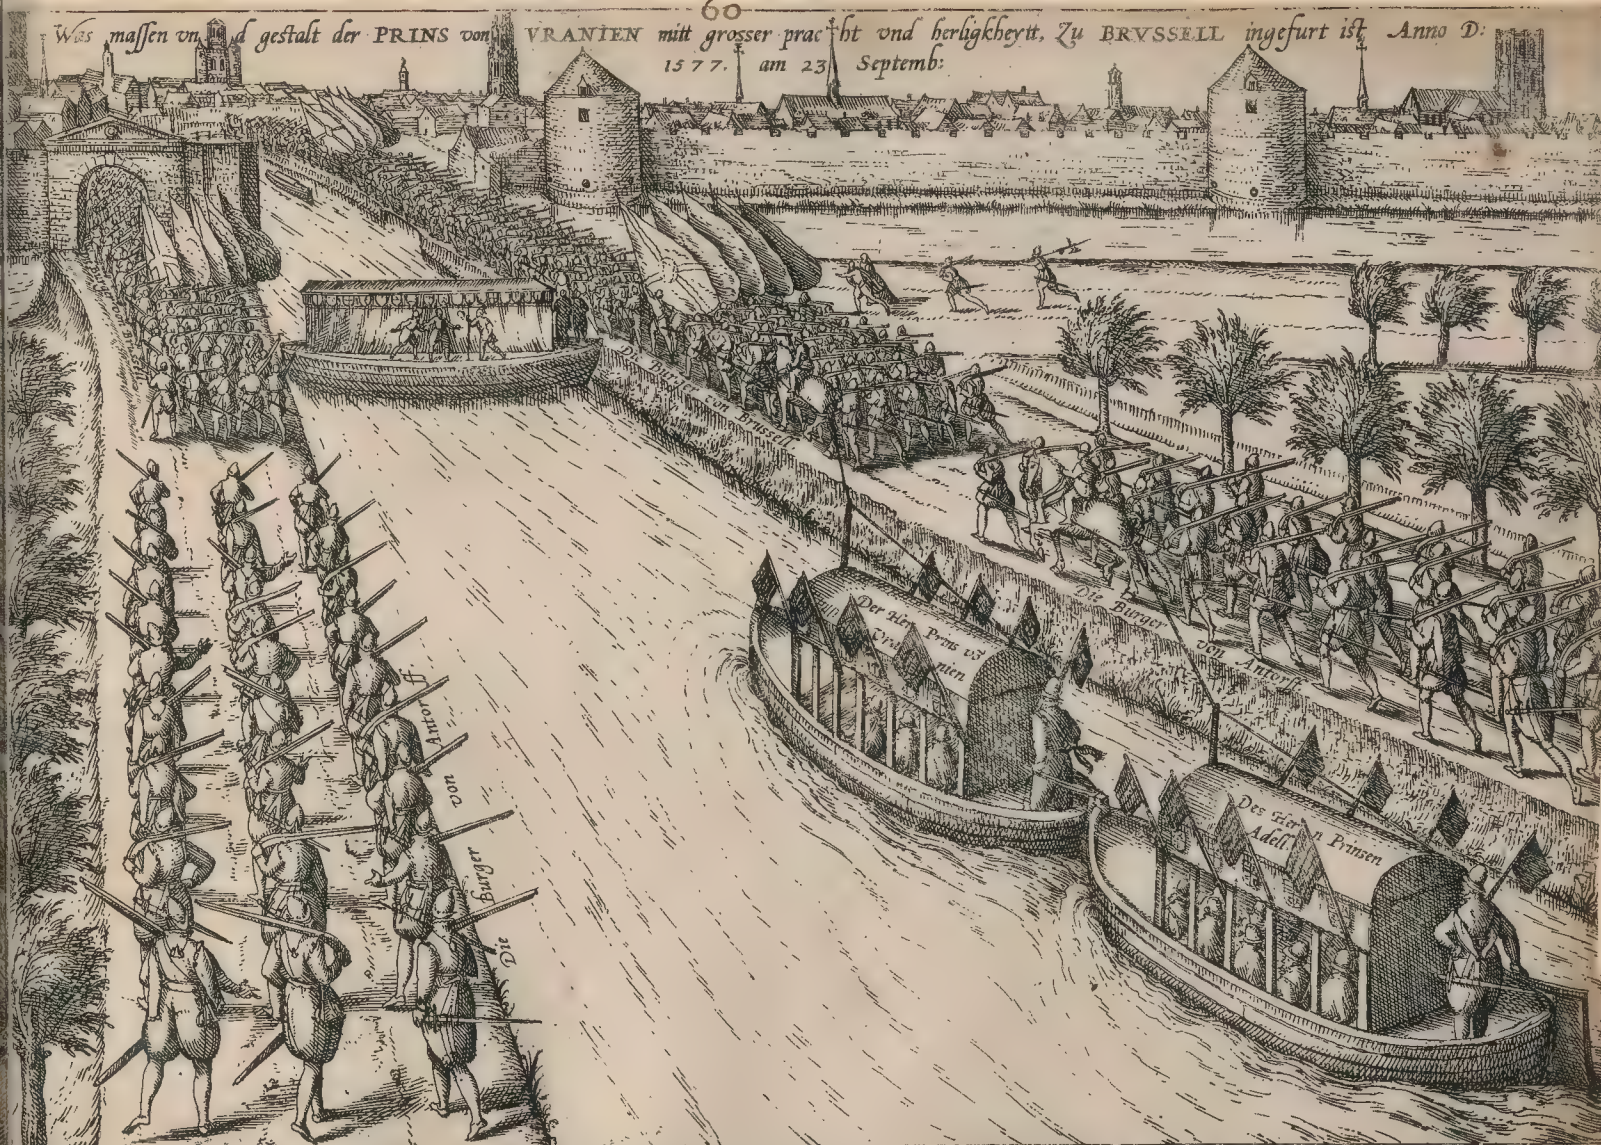 60
Was massen vnd gestalt der PRINS von VRANIEN mitt grosser pracht vnd herligkheyit, Zu BRVSSELL ingefurt ist Anno D:
1577. am 23 Septemb:
Die Burger von brussell
Der Her Prins vō
Vranien
Die Burger von Antorff
Des Herrn Prinsen
Adell
Die Burger von Antorff